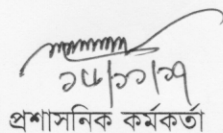 ১৮/১১/১৭
প্রশাসনিক কর্মকর্তা